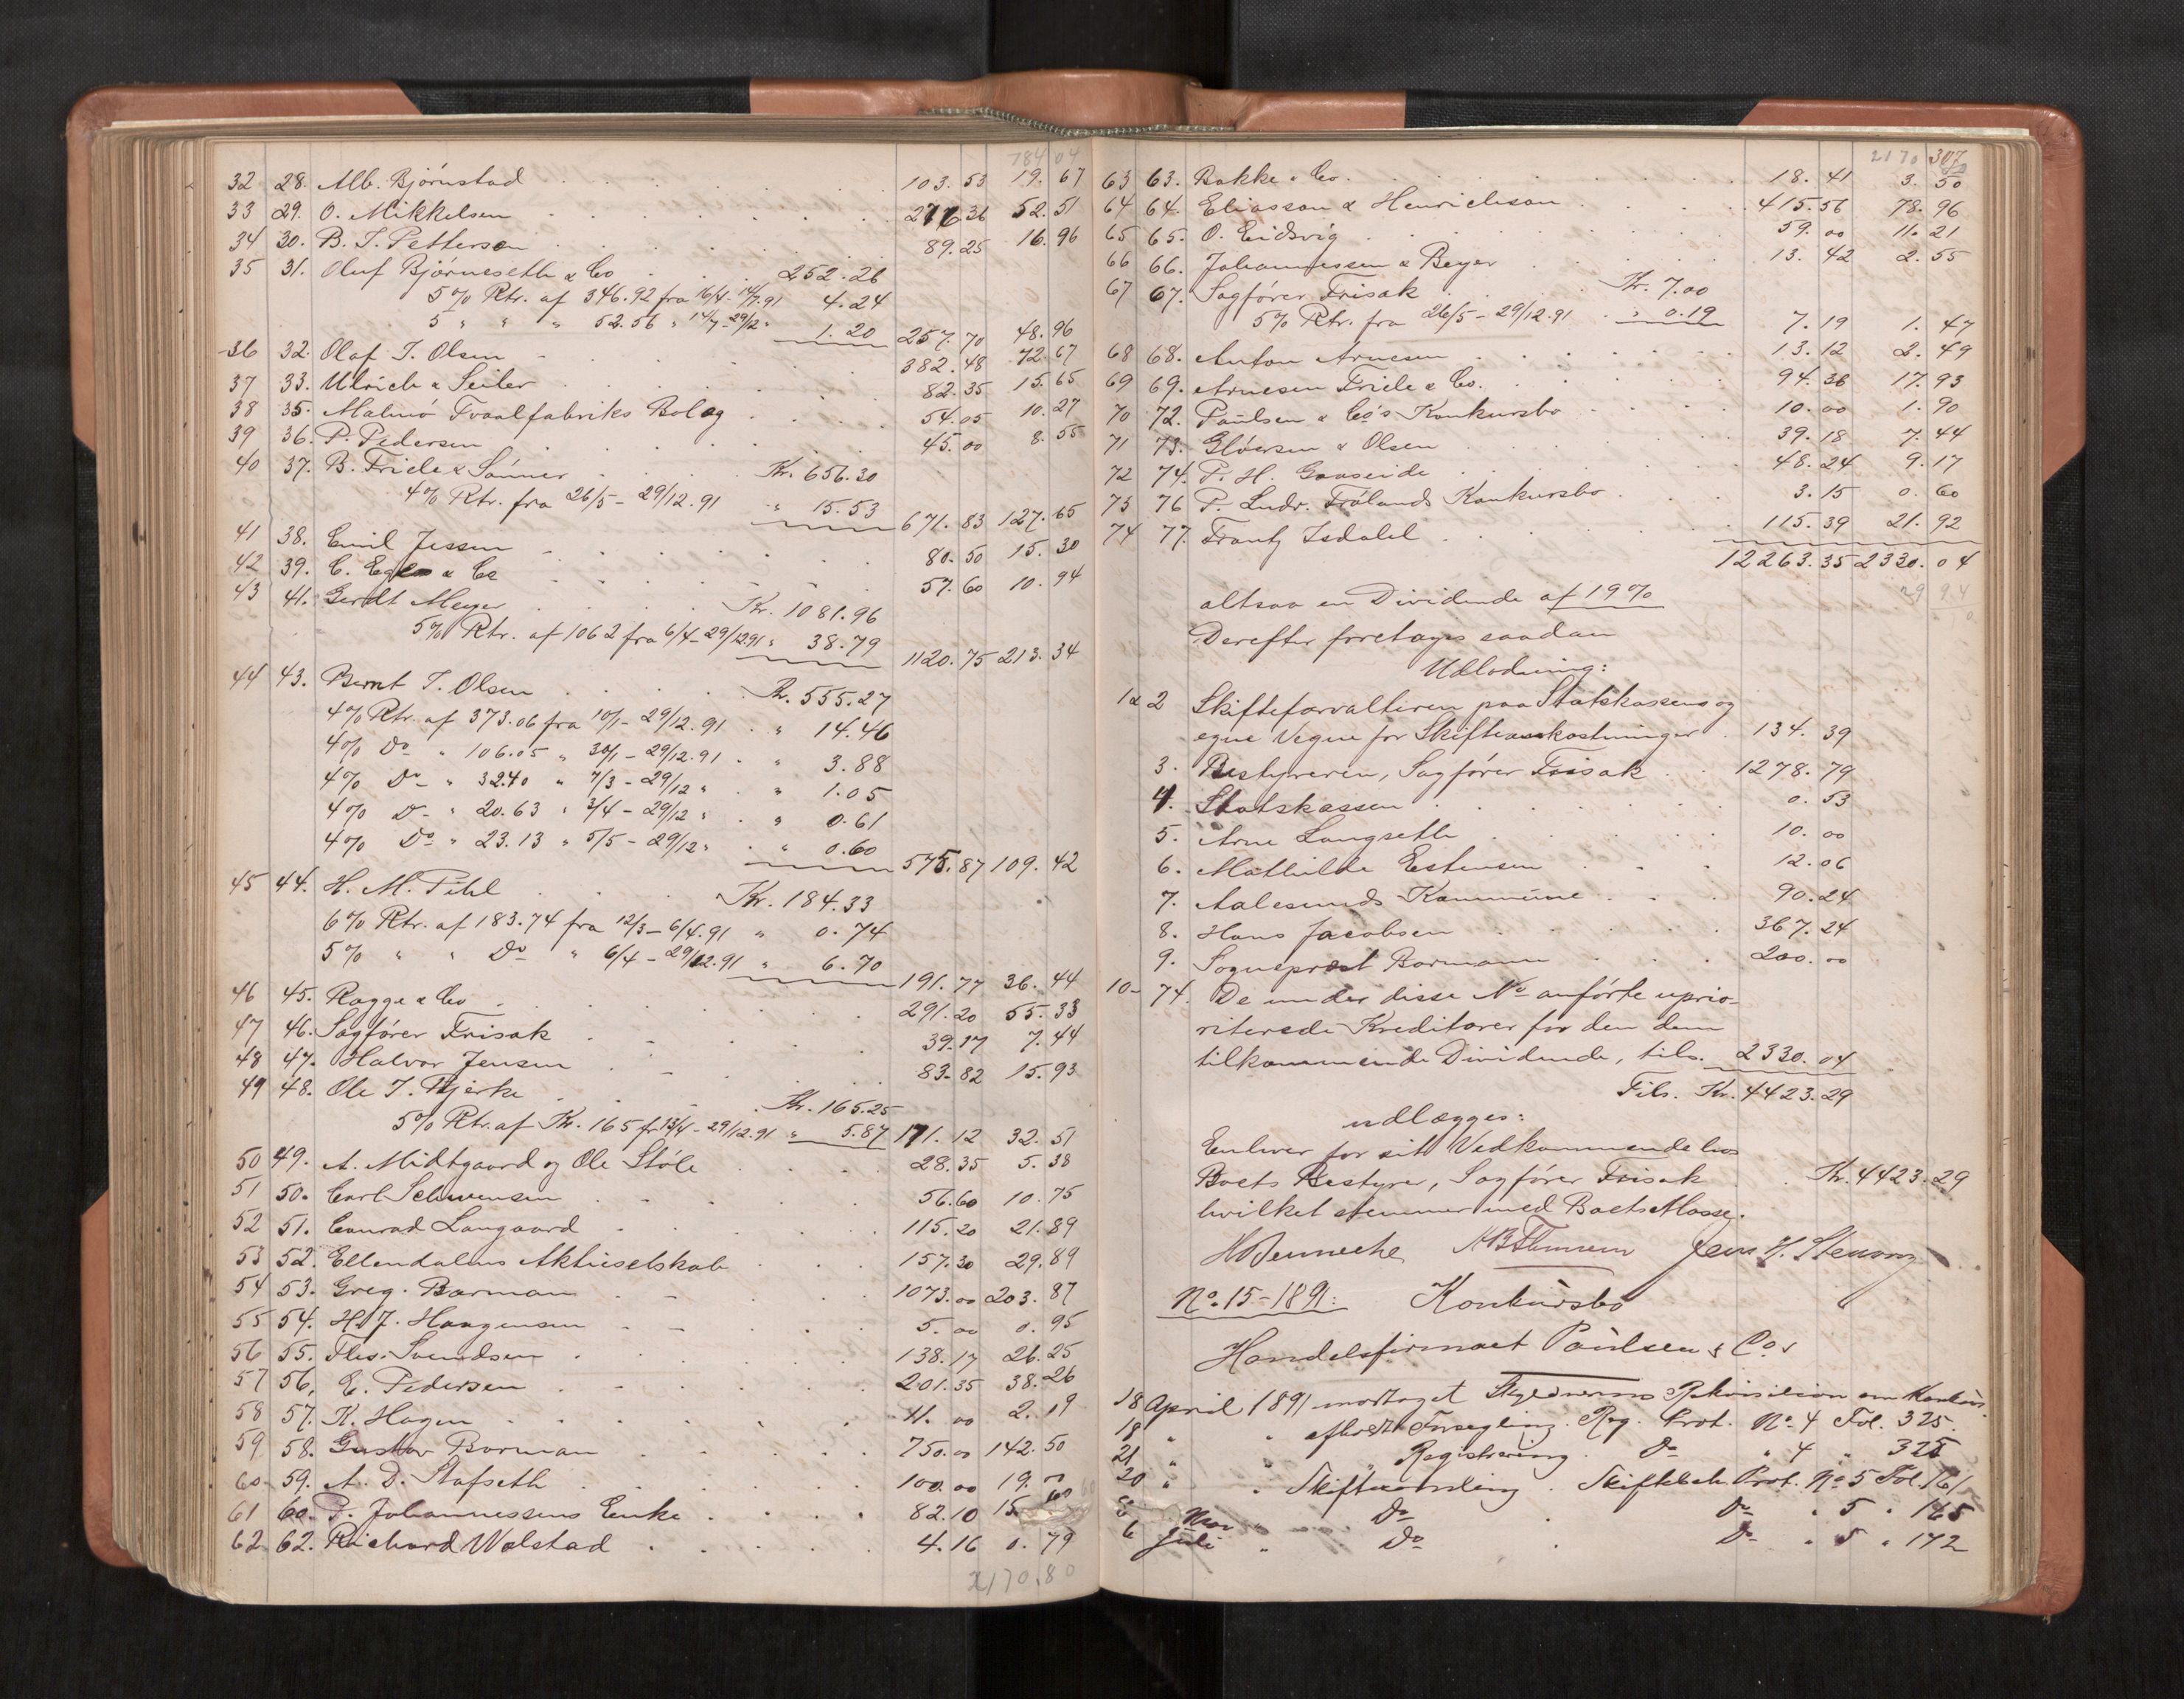 784 04
32 28. Alb. Bjørnstad 103. 53 19. 67
33 29. O. Mikkelsen 276 36 52. 51
34 30. B. T. Pettersen 89. 25 16. 96
35 31. Oluf Bjørneseth & Co 252.26
5% Rtr. af 346.92 fra 16/4 - 14/7.91 4.24
5 " " " 52.56 " 14/7 - 29/12 " 1.20 257. 70 48. 96
36 32. Olaf T. Olsen 382. 48 72. 67
37 33. Ulrich & Seiler 82. 35 15. 65
38 35. Malmö Tvaalfabriks Bolag 54. 05 10. 27
39 36. P. Pedersen 45. 00 8. 55
40 37. B. Friele & Sønner Kr. 656.30
4% Rtr. fra 26/5 - 29/12.91 " 15.53 671. 83 127. 65
41 38. Emil Jessen 80. 50 15. 30
42 39. C. Egers & Co 57. 60 10. 94
43 41. Gerdt Meyer Kr. 1081.96
5% Rtr. af 1062 fra 6/4 - 29/12.91 " 38.79 1120. 75 213. 34
44 43. Bernt T. Olsen Kr. 555.27
4% Rtr. af 373.06 fra 10/1 - 29/12.91 " 14.46
4% Do " 106.05 " 30/1 - 29/12.91 " 3.88
4% Do " 32.40 " 7/3 - 29/12 " " 1.05
4% Do " 20.63 " 3/4 - 29/12 " " 0.61
4% Do " 23.13 " 5/5 - 29/12 " " 0.60 575. 87 109. 42
45 44. H. M. Pihl Kr. 184.33
6% Rtr. af 183.74 fra 12/3 - 6/4.91 " 0.74
5% " " Do " 6/4 - 29/12.91 " 6.70 191. 77 36. 44
46 45. Ragge & Co 291. 20 55. 33
47 46. Sagfører Frisak 39. 17 7. 44
48 47. Halvor Jensen 83. 82 15. 93
49 48. Ole T. Bjerke Kr. 165.25
5% Rtr. af Kr. 165 fr 13/4 - 29/12.91 " 5.87 171. 12 32. 51
50 49. A. Midtgaard og Ole Støle 28. 35 5. 38
51 50. Carl Schwensen 56. 60 10. 75
52 51. Conrad Langaard 115. 20 21. 89
53 52. Ellendalens Aktieselskab 157. 30 29. 89
54 53. Greg. Barman 1073. 00 203. 87
55 54. H. J. Haagensen 5. 00 0. 95
56 55. Ths. Svendsen 138. 17 26. 25
57 56. E. Pedersen 201. 35 38. 26
58 57. K. Hagen 11. 00 2. 19
59 58. Gustav Barman 750. 00 142. 50
60 59. A. D. Stafseth 100. 00 19. 00
61 60. P. Johannessens Enke 82. 10 15. 60
62 62. Richard Wolstad 4. 16 0. 79
2170.80
2170 307
63 63. Bakke & Co. 18. 41 3. 50
64 64. Eliasson & Henrichson 415. 56 78. 96
65 65. O. Eidsvig 59. 00 11. 21
66 66. Johannessen & Beyer 13. 42 2. 55
67 67. Sagfører Frisak Kr. 7.00
5% Rtr. fra 26/5 - 29/12.91 " 0.19 7. 19 1. 47
68 68. Anton Arnesen 13. 12 2. 49
69 69. Arnesen Friele & Co. 94. 36 17. 93
70 72. Paulsen & Co's Konkursbo 10. 00 1. 90
71 73. Gløersen & Olsen 39. 18 7. 44
72 74. P. H. Gaaseide 48. 24 9. 17
73 76 P. Ludv. Frølands Konkursbo 3. 15 0. 60
74 77. Frantz Isdahl 115. 39 21. 92
12263. 35 2330. 04
altsaa en Dividende af 19%
Derefter foretages saadan
Udlodning:
1 & 2 Skifteforvalteren paa Statskassens og
egne Vegne for Skifteomkostninger 134. 39
3. Bestyreren, Sagfører Frisak 1278. 79
4. Statskassen 0. 53
5. Arne Langseth 10. 00
6. Mathilde Estensen 12. 06
7. Aalesunds Kommune 90. 24
8. Hans Jacobsen 367. 24
9. Sogneprest Barmann 200. 00
10-74. De under disse No anførte uprio-
riterede Kreditorer for den dem
tilkommende Dividende, tils. 2330. 04
Tils. Kr. 4423.29
udlægges:
Enhver for sit Vedkommende hos
Boets Bestyrer, Sagfører Frisak Kr. 4423.29
hvilket stemmer med Boets Masse.
Jens H. Stensong
No. 15 - 1891: Konkursbo
Handelsfirmaet Paulsen & Co.
18 April 1891 modtaget Skyldnerens Rekvisision om Konkurs.
18 " " afholdt Forsegling. Reg. Prot. No. 4 Fol. 325.
21 " " " Registrering Do " 4 " 325
20 " " Skiftesamling. Skifteb. Prot. No 5 Fol. 161
Mai " Do Do " 5 " 165
6 Juli " Do Do " 5 " 172